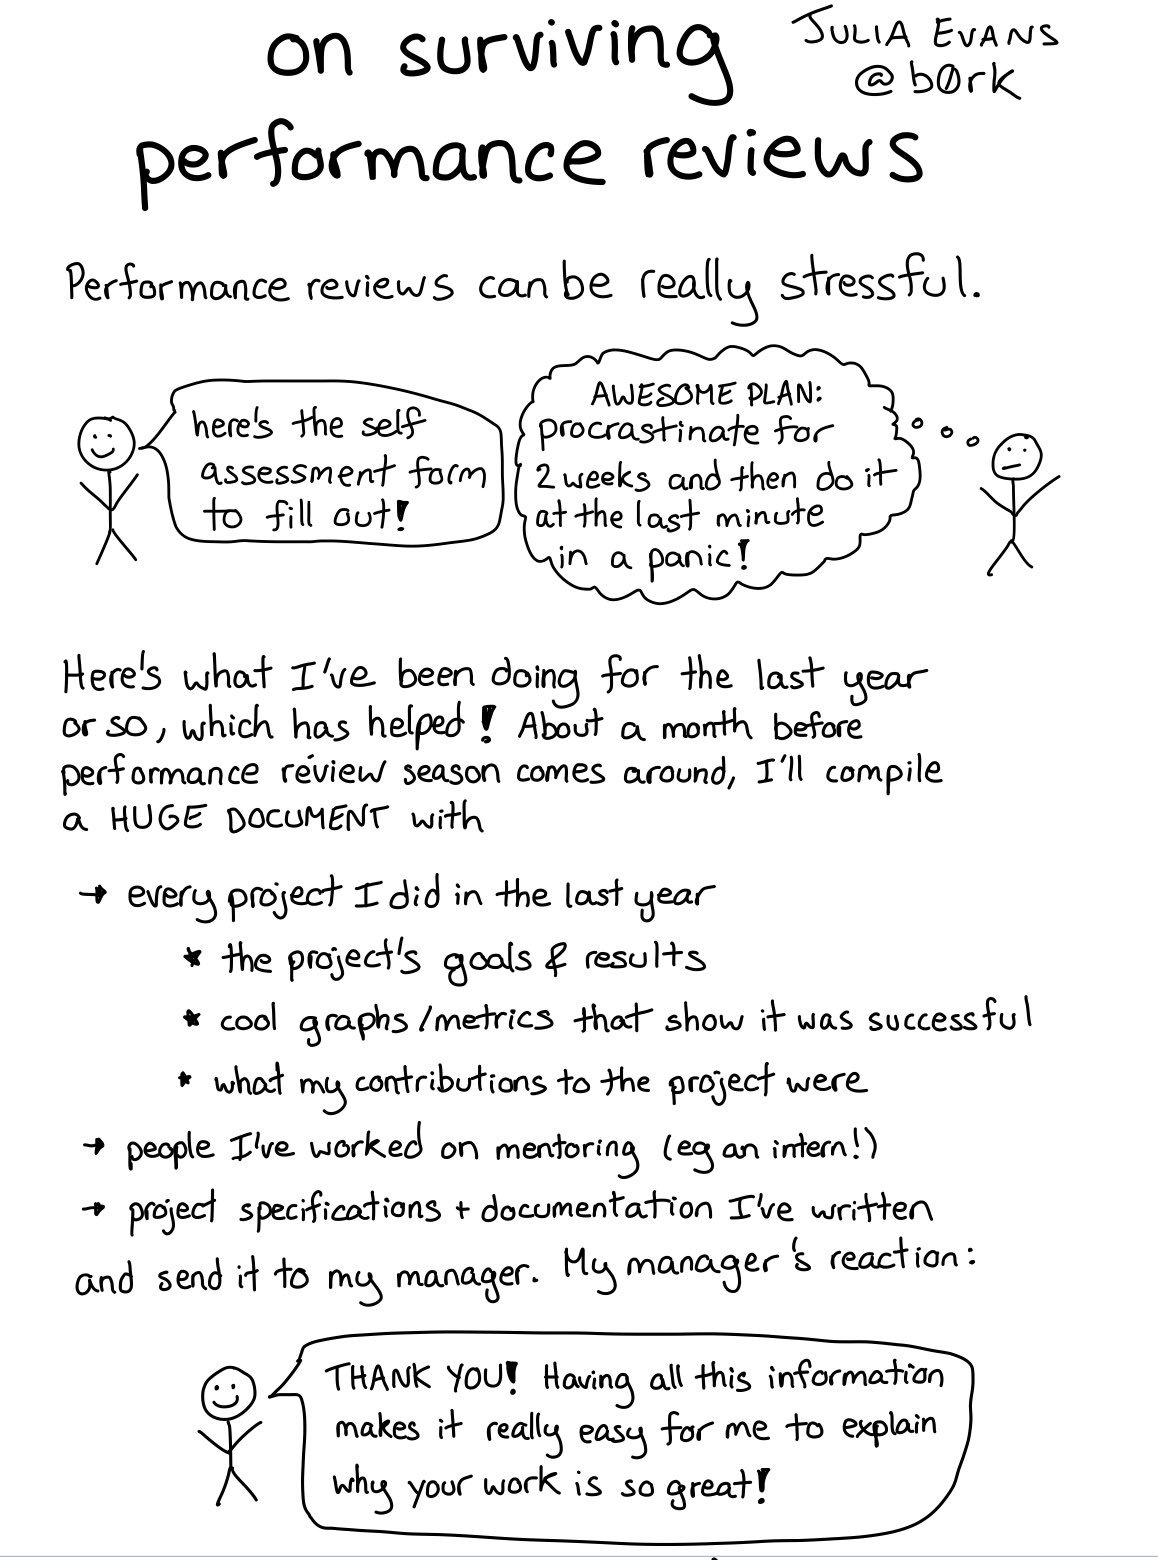 on surviving
JULIA EVANS
@b0rk
performance reviews
Performance reviews can be really stressful.
here's the self
assessment form
to fill out!
AWESOME PLAN:
procrastinate for
2 weeks and then do it
at the last minute
in a panic!
Here's what I've been doing for the last year
or so, which has helped! About a month before
performance review season comes around, I'll compile
a HUGE DOCUMENT with
→ every project I did in the last year
* the project's goals & results
* cool graphs/metrics that show it was successful
* what my contributions to the project were
→ people I've worked on mentoring (eg an intern!)
→ project specifications + documentation I've written
and send it to my manager. My manager's reaction:
THANK YOU! Having all this information
makes it really easy for me to explain
why your work is so great!